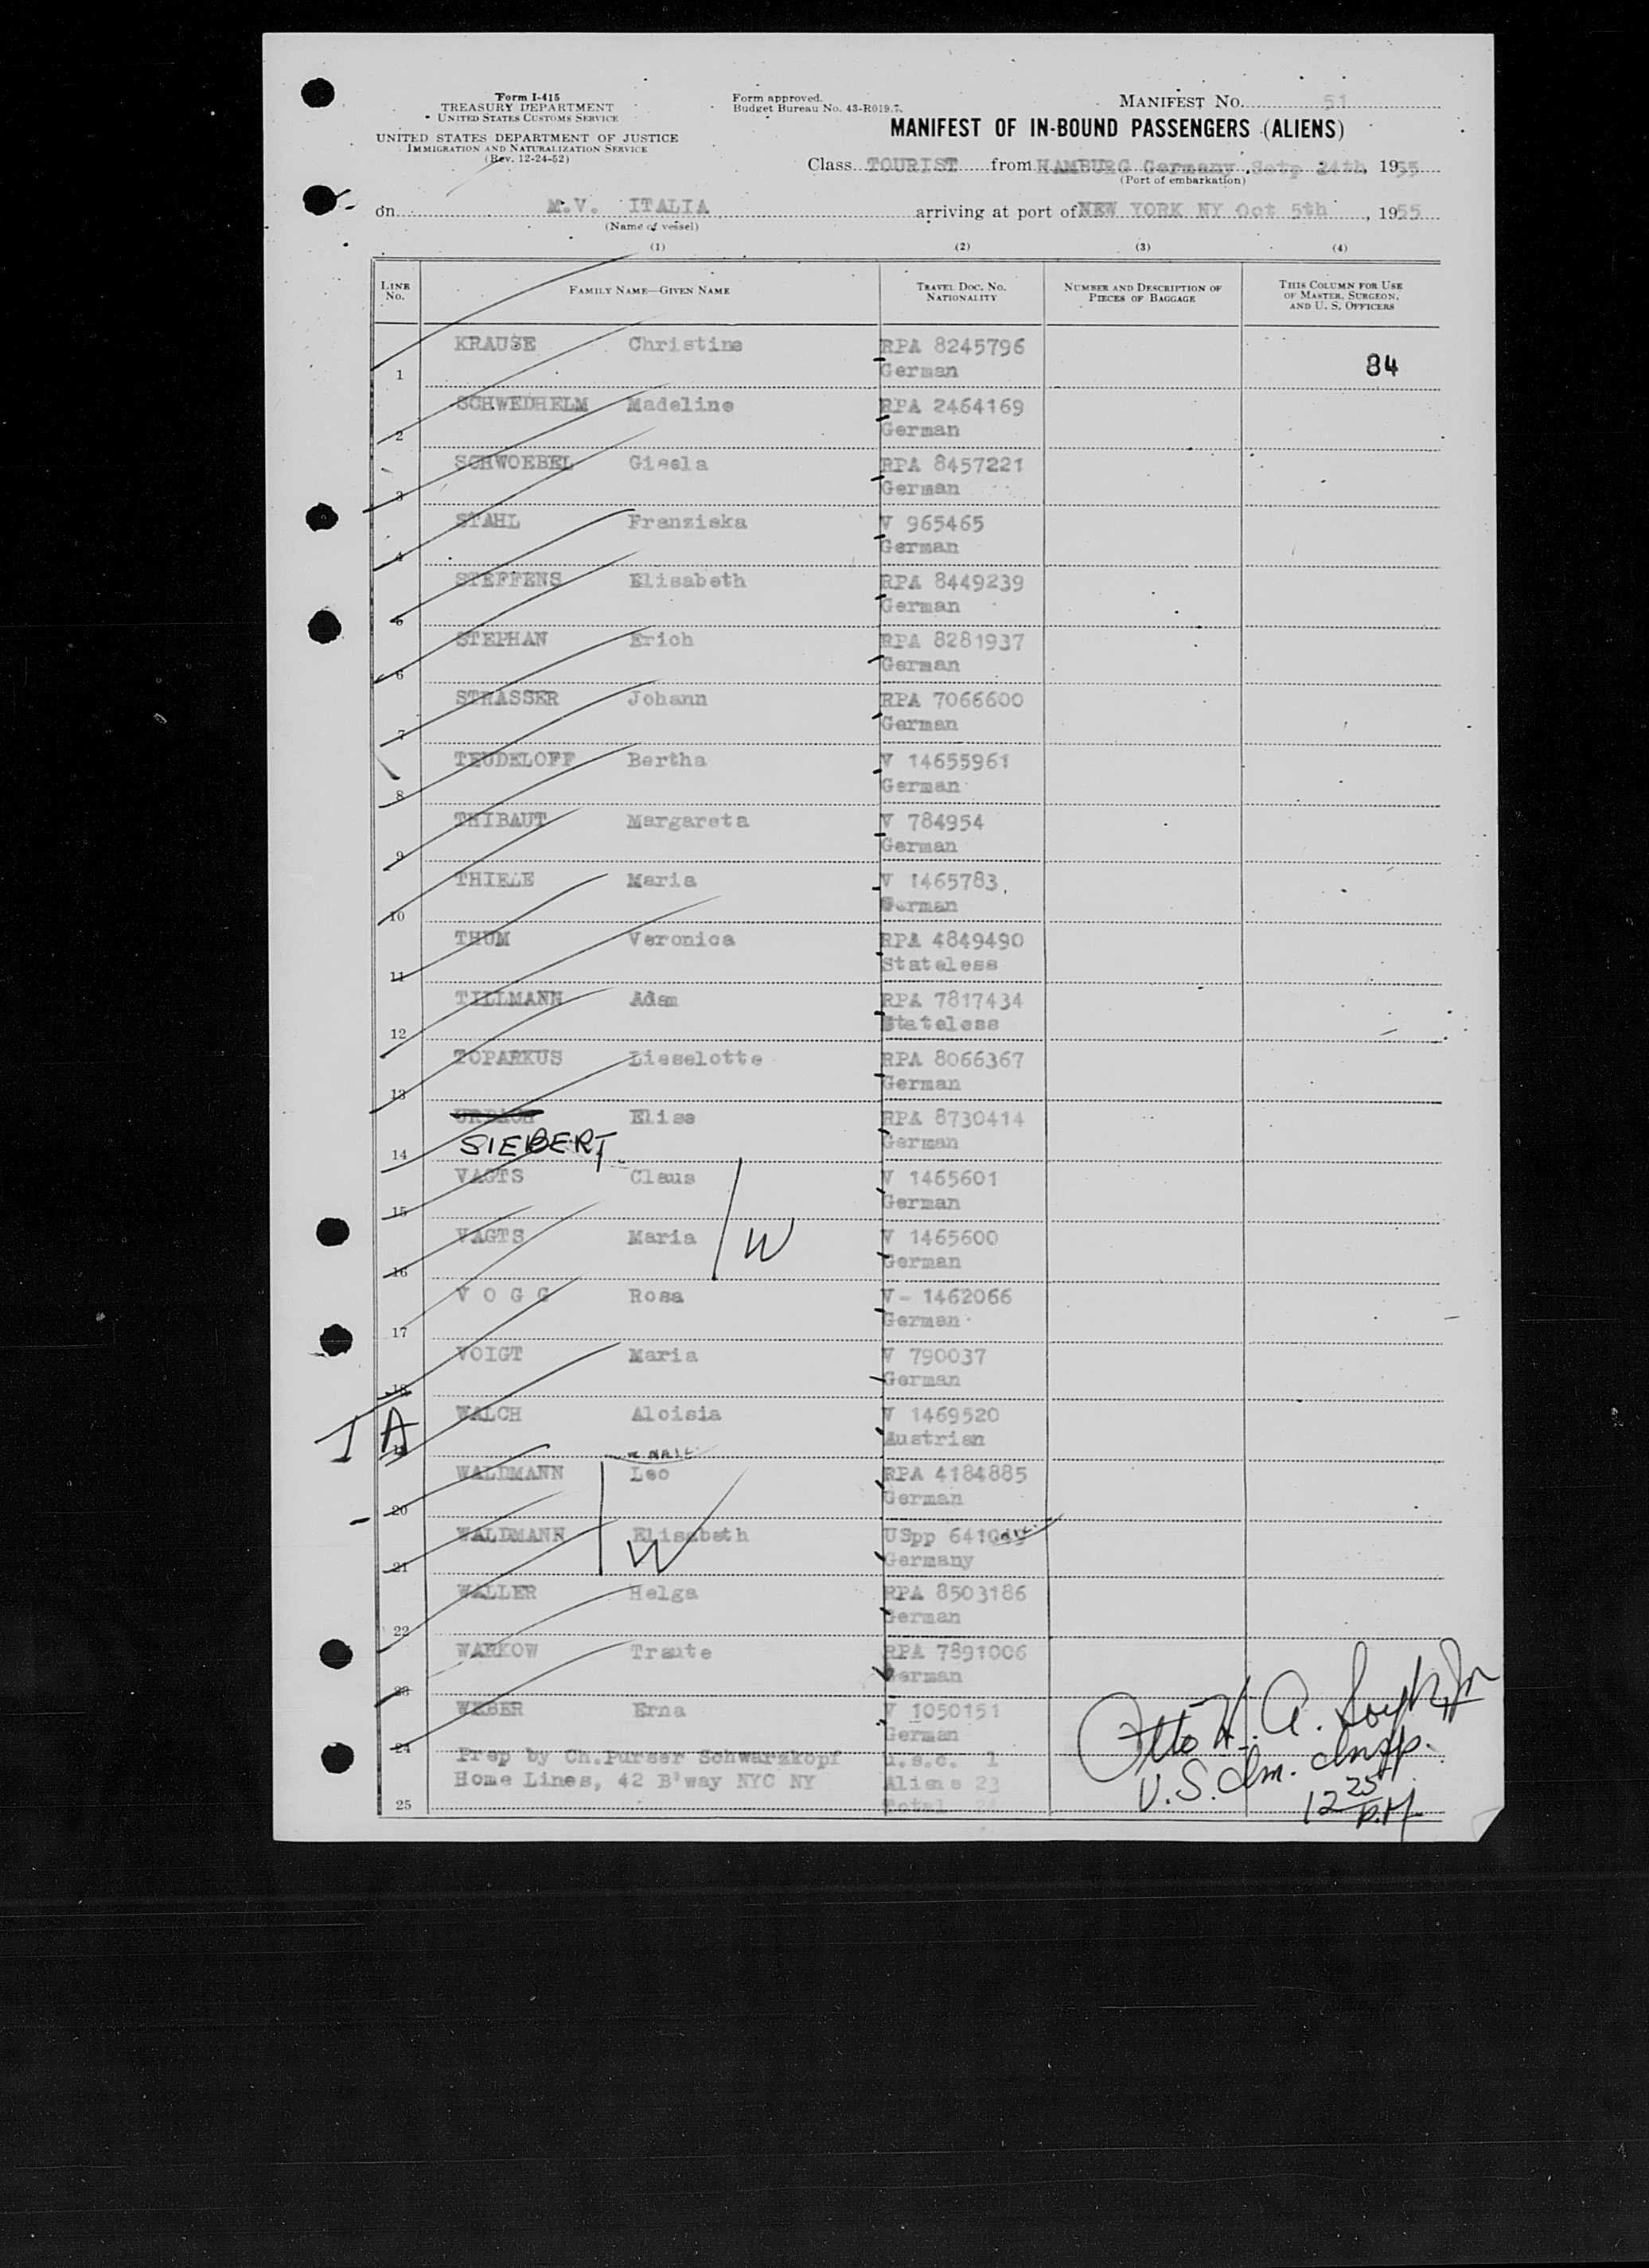 Form I-415
TREASURY DEPARTMENT
UNITED STATES CUSTOMS SERVICE
UNITED STATES DEPARTMENT OF JUSTICE
IMMIGRATION AND NATURALIZATION SERVICE
(Rev. 12-24-52)
Form approved.
Budget Bureau No. 43-R019.7.
MANIFEST NO. 51
MANIFEST OF IN-BOUND PASSENGERS (ALIENS)
Class TOURIST from HAMBURG Germany, Setp 24th, 1955
(Port of embarkation)
on M.V. ITALIA arriving at port of NEW YORK NY Oct 5th, 1955
(Name of vessel)
(1) (2) (3) (4)
LINE NO. FAMILY NAME—GIVEN NAME TRAVEL DOC. NO. NATIONALITY NUMBER AND DESCRIPTION OF PIECES OF BAGGAGE THIS COLUMN FOR USE OF MASTER, SURGEON, AND U. S. OFFICERS
KRAUSE Christine RPA 8245796
1 German 84
SCHWEDHELM Madeline RPA 2464169
2 German
SCHWOEBEL Gisela RPA 8457221
3 German
STAHL Franziska V 965465
4 German
STEFFENS Elisabeth RPA 8449239
5 German
STEPHAN Erich RPA 8281937
6 German
STRASSER Johann RPA 7066600
7 German
TEUDELOFF Bertha V 14655961
8 German
THIBAUT Margareta V 784954
9 German
THIELE Maria V 1465783
10 German
THUM Veronica RPA 4849490
11 Stateless
TILLMANN Adam RPA 7817434
12 Stateless
TOPARKUS Lieselotte RPA 8066367
13 German
URBACH Elise RPA 8730414
14 SIEBERT German
VAGTS Claus V 1465601
15 German
VAGTS Maria W V 1465600
16 German
V O G G Rosa V- 1462066
17 German
VOIGT Maria V 790037
18 German
WALCH Aloisia V 1469520
I A 19 Austrian
WALDMANN Leo RPA 4184885
20 German
WALDMANN Elisabeth USpp
21 W Germany
WALLER Helga RPA 8503186
22 German
WARKOW Traute RPA 7891006
23 German
WEBER Erna V 1050151
24 German
Prep by Ch.Purser Schwarzkopf U.S.C. 1
Home Lines, 42 B'way NYC NY Aliens 23
25 Total 24
Otto H. A.
U.S. Im. Insp.
12 25
P.M.